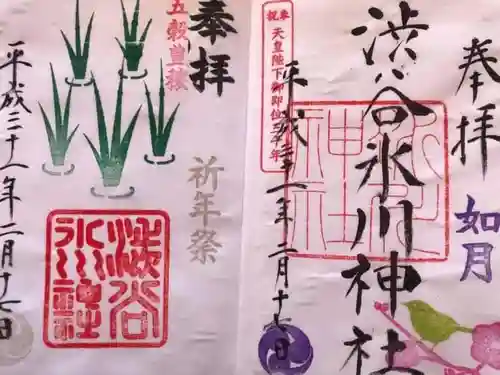 奉拝
如月
渋谷氷川神社
奉祝 天皇陛下御即位三十年
平成三十一年二月十七日
奉拝
五穀豊穣
祈年祭
渋谷氷川神社
平成三十一年二月十七日